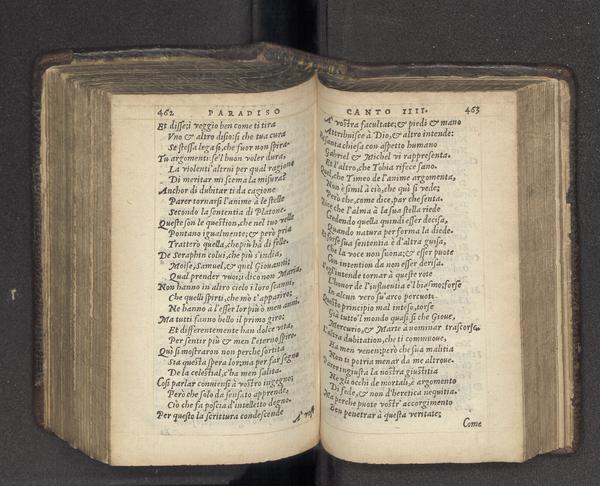 462 PARADISO
Et disse; i veggio ben come ti tira
Vno & altro disio: si che tua cura
Se stessa lega si, che fuor non spira.
Tu argomenti: se'l buon voler dura,
La violenti altrui per qual ragione
Di meritar mi scema la misura?
Anchor di dubitar ti da cagione
Parer tornarsi l'anime à le stelle
Secondo la sententia di Platone.
Queste son le question, che nel tuo velle
Pontano igualmente; & però pria
Tratterò quella, che più hà di felle.
De Seraphin colui, che più s'india,
Moise, Samuel, & quel Giouanni;
Qual prender vuoi; i dico non Maria,
Non hanno in altro cielo i loro scanni,
Che quelli spirti, che mò t'appariro;
Ne hanno à l'esser lor più ò men anni.
Ma tutti fanno bello il primo giro;
Et differentemente han dolce vita,
Per sentir più & men l'eterno spiro.
Quì si mostraron non perche sortita
Sia questa spera lor; ma per far segno
De la celestial, c'ha men salita.
Cosi parlar conuiensi à vostro ingegno;
Però che solo da sensato apprende,
Ciò che fa poscia d'intelletto degno.
Per questo la scrittura condescende
A' vost
CANTO IIII. 463
A' vostra facultate; & piedi & mano
Attribuisce à Dio, & altro intende:
santa chiesa con aspetto humano
Gabriel & Michel vi rappresenta,
Et l'altro, che Tobia rifece sano.
Quel, che Timeo de l'anime argomenta,
Non è simil à ciò, che quì si vede;
Però che, come dice, par che senta.
Dice che l'alma à la sua stella riede
Credendo quella quindi esser decisa,
Quando natura per forma la diede.
Et forse sua sententia è d'altra guisa,
Che la voce non suona; & esser puote
Con intention da non esser derisa.
intende tornar à queste rote
L'honor de l'influentia e'l biasmo; forse
In alcun vero su'arco percuote.
Questo principio mal inteso, torse
Già tutto'l mondo quasi si che Gioue,
Mercurio, & Marte à nominar trascorse.
L'altra dubitation, che ti commuoue,
Ha men venen; però che sua malitia
Non ti potria menar da me altroue.
Parer ingiusta la nostra giustitia
Ne gli occhi de mortali, è argomento
Di fede, & non d'heretica nequitia.
Ma perche puote vostr' accorgimento
Ben penetrar à questa veritate;
Come